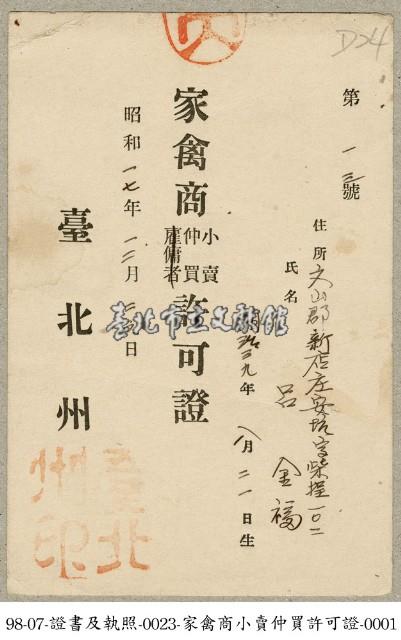 D24
第一三號
住所 文山郡新店庄安坑字柴埕一〇二
氏名 呂金福
明治三九年八月二一日生
家禽商小賣仲買雇傭者許可證
昭和一七年一二月 日
臺北州
臺北市立文獻館
98-07-證書及執照-0023-家禽商小賣仲買許可證-0001